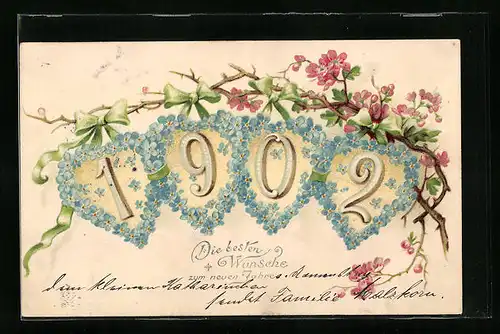 1902
Die besten
Wünsche
zum neuen Jahre
Dem kleinen Katharinchen
sendet Familie